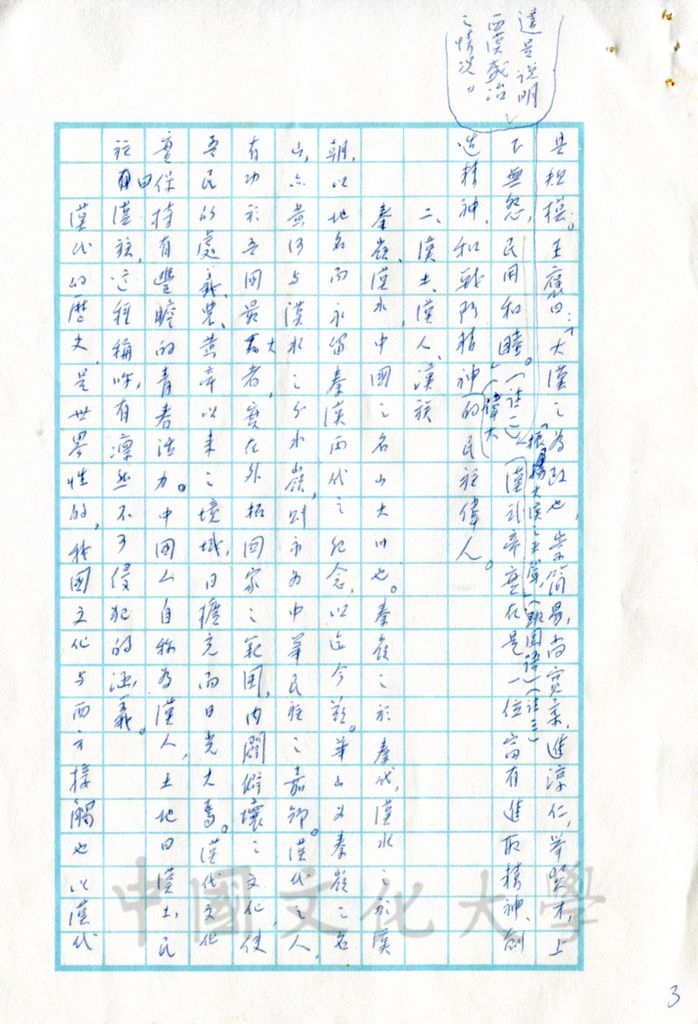 這是說明
西漢盛治
之情况。
其規模。王襃曰：「大漢之為政也，崇簡易，尚寬柔，進淳仁，舉賢才，上
下無怨，民用和睦。」（註二）「振揚大漢之天聲」（班固語）（註三）漢武帝實在是一位富有進取精神、創
造精神、和戰鬥精神的偉大民族偉人。
二、漢土、漢人、漢族
秦嶺、漢水，中國之名山大川也。秦嶺之於秦代，漢水之於漢
朝，以地名而永留秦漢兩代之紀念，以迄今茲。華山為秦嶺之名
山，亦黃河與漢水之分水嶺，則亦為中華民族之嘉師。漢代之人，
有功於吾國最大者，實在外拓國家之範圍，內闢僻壤之文化，使
吾民所處羲、農、黃帝以來之境域，日擴充而日光大焉。漢代文化
實保持有豐贍的青春活力。中國人自稱為漢人，土地曰漢土，民
族曰漢族，這種稱呼，有凜然不可侵犯的涵義。
漢代的歷史，是世界性的，我國文化與西方接觸也以漢代
中國文化大學
3